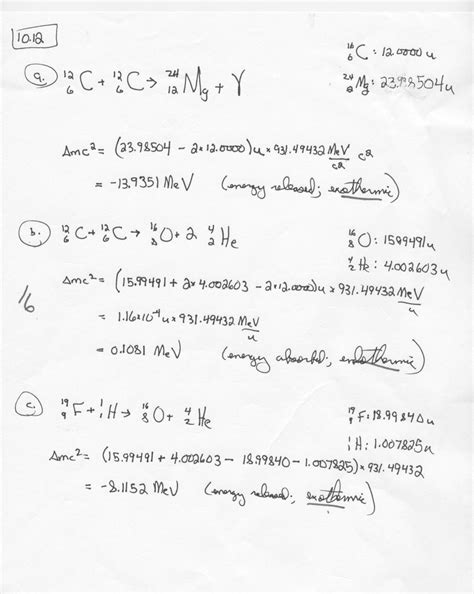 10.12
¹⁶₆C: 12.0000u
a. ¹²₆C + ¹²₆C → ²⁴₁₂Mg + γ
²⁴₆Mg: 23.98504u
Δmc² = (23.98504 - 2×12.0000)u × 931.49432 MeV/c² c²
= -13.9351 MeV (energy released; exothermic)
b. ¹²₆C + ¹²₆C → ¹⁶₈O + 2 ⁴₂He
¹⁶₈O: 15.99491u
⁴₂He: 4.002603u
Δmc² = (15.99491 + 2×4.002603 - 2×12.0000)u × 931.49432 MeV/u
16
= 1.16×10⁻⁴u × 931.49432 MeV/u
= 0.1081 MeV (energy absorbed; endothermic)
c. ¹⁹₉F + ¹₁H → ¹⁶₈O + ⁴₂He
¹⁹₉F: 18.99840u
¹₁H: 1.007825u
Δmc² = (15.99491 + 4.002603 - 18.99840 - 1.007825) × 931.49432
= -8.1152 MeV (energy released; exothermic)